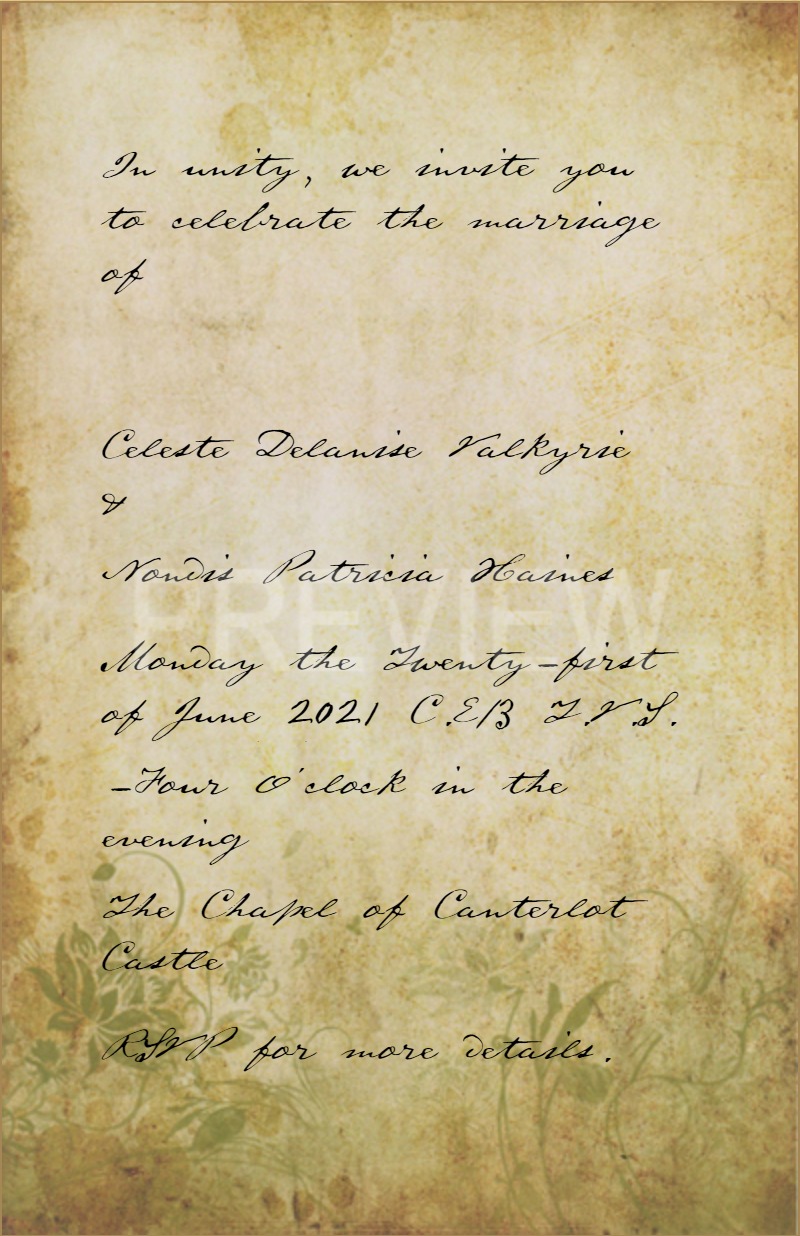 In unity, we invite you
to celebrate the marriage
of
Celeste Delanise Valkyrie
&
Nondis Patricia Haines
PREVIEW
Monday the Twenty-first
of June 2021 C.E/3 T.V.S.
-Four O'clock in the
evening
The Chapel of Canterlot
Castle
RSVP for more details.